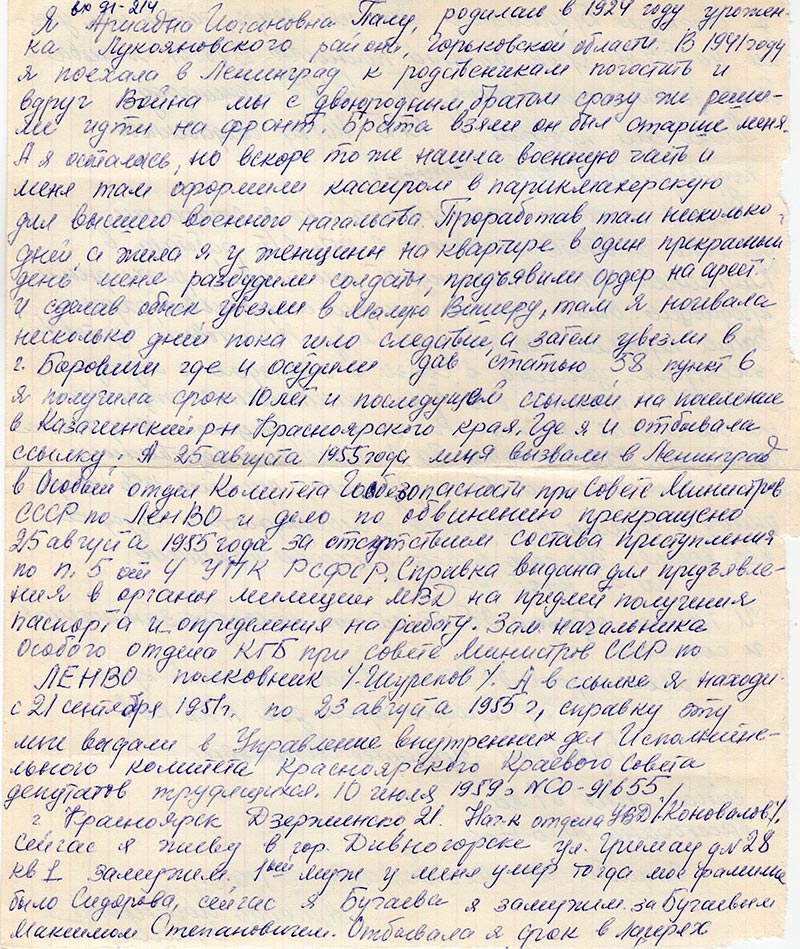 вх 91-214
Я Ариадна Иогановна Палу, родилась в 1924 году урожен-
ка Лукояновского района, Горьковской области. В 1941 году
я поехала в Ленинград к родственикам погостить и
вдруг Война мы с двоюродным братом сразу же реши-
ли идти на фронт. Брата взяли он был старше меня.
А я осталась, но вскоре то же нашла военную часть и
меня там оформили кассиром в парикмахерскую
для высшего военного начальства. Проработав там несколько
дней а жила я у женщины на квартире в один прекрасный
день меня разбудили солдаты, предъявили ордер на арест
и сделав обыск увезли в Малую Вишеру, там я ночевала
несколько дней пока шло следствие, а затем увезли в
г. Боровичи где и осудили дав статью 58 пункт 6
я получила срок 10 лет и последущей ссылкой на поселение
в Казачинский р-н Красноярского края. Где я и отбывала
ссылку. А 25 августа 1955 года меня вызвали в Ленинград
в Особый отдел Комитета Госбезопасности при Совете Министров
СССР по ЛенВО и дело по обвинению прекращено
25 августа 1955 года за отсутствием состава преступления
по п. 5 ст 4 УПК РСФСР. Справка выдана для предъявле-
ния в органы милиции МВД на предмет получения
паспорта и определения на работу. Зам начальника
Особого отдела КГБ при совете Министров СССР по
ЛЕНВО полковник /-Шурепов/. А в ссылке я находи-
с 21 сентября 1951г. по 23 августа 1955 г, справку эту
мне выдали в Управление внутренних дел Исполните-
льного комитета Красноярского Краевого Совета
депутатов трудящихся. 10 июля 1959 г NСО-91655/
г. Красноярск Дзержинско 21. Нач-к отдела УВД /-Коновалов/.
Сейчас я живу в гор. Дивногорске ул. Гримау д N 28
кв 1 замужем. 1ый муж у меня умер тогда моя фамилия
было Сидорова, сейчас я Бугаева я замужем за Бугаевым
Максимом Степановичем. Отбывала я срок в лагерях